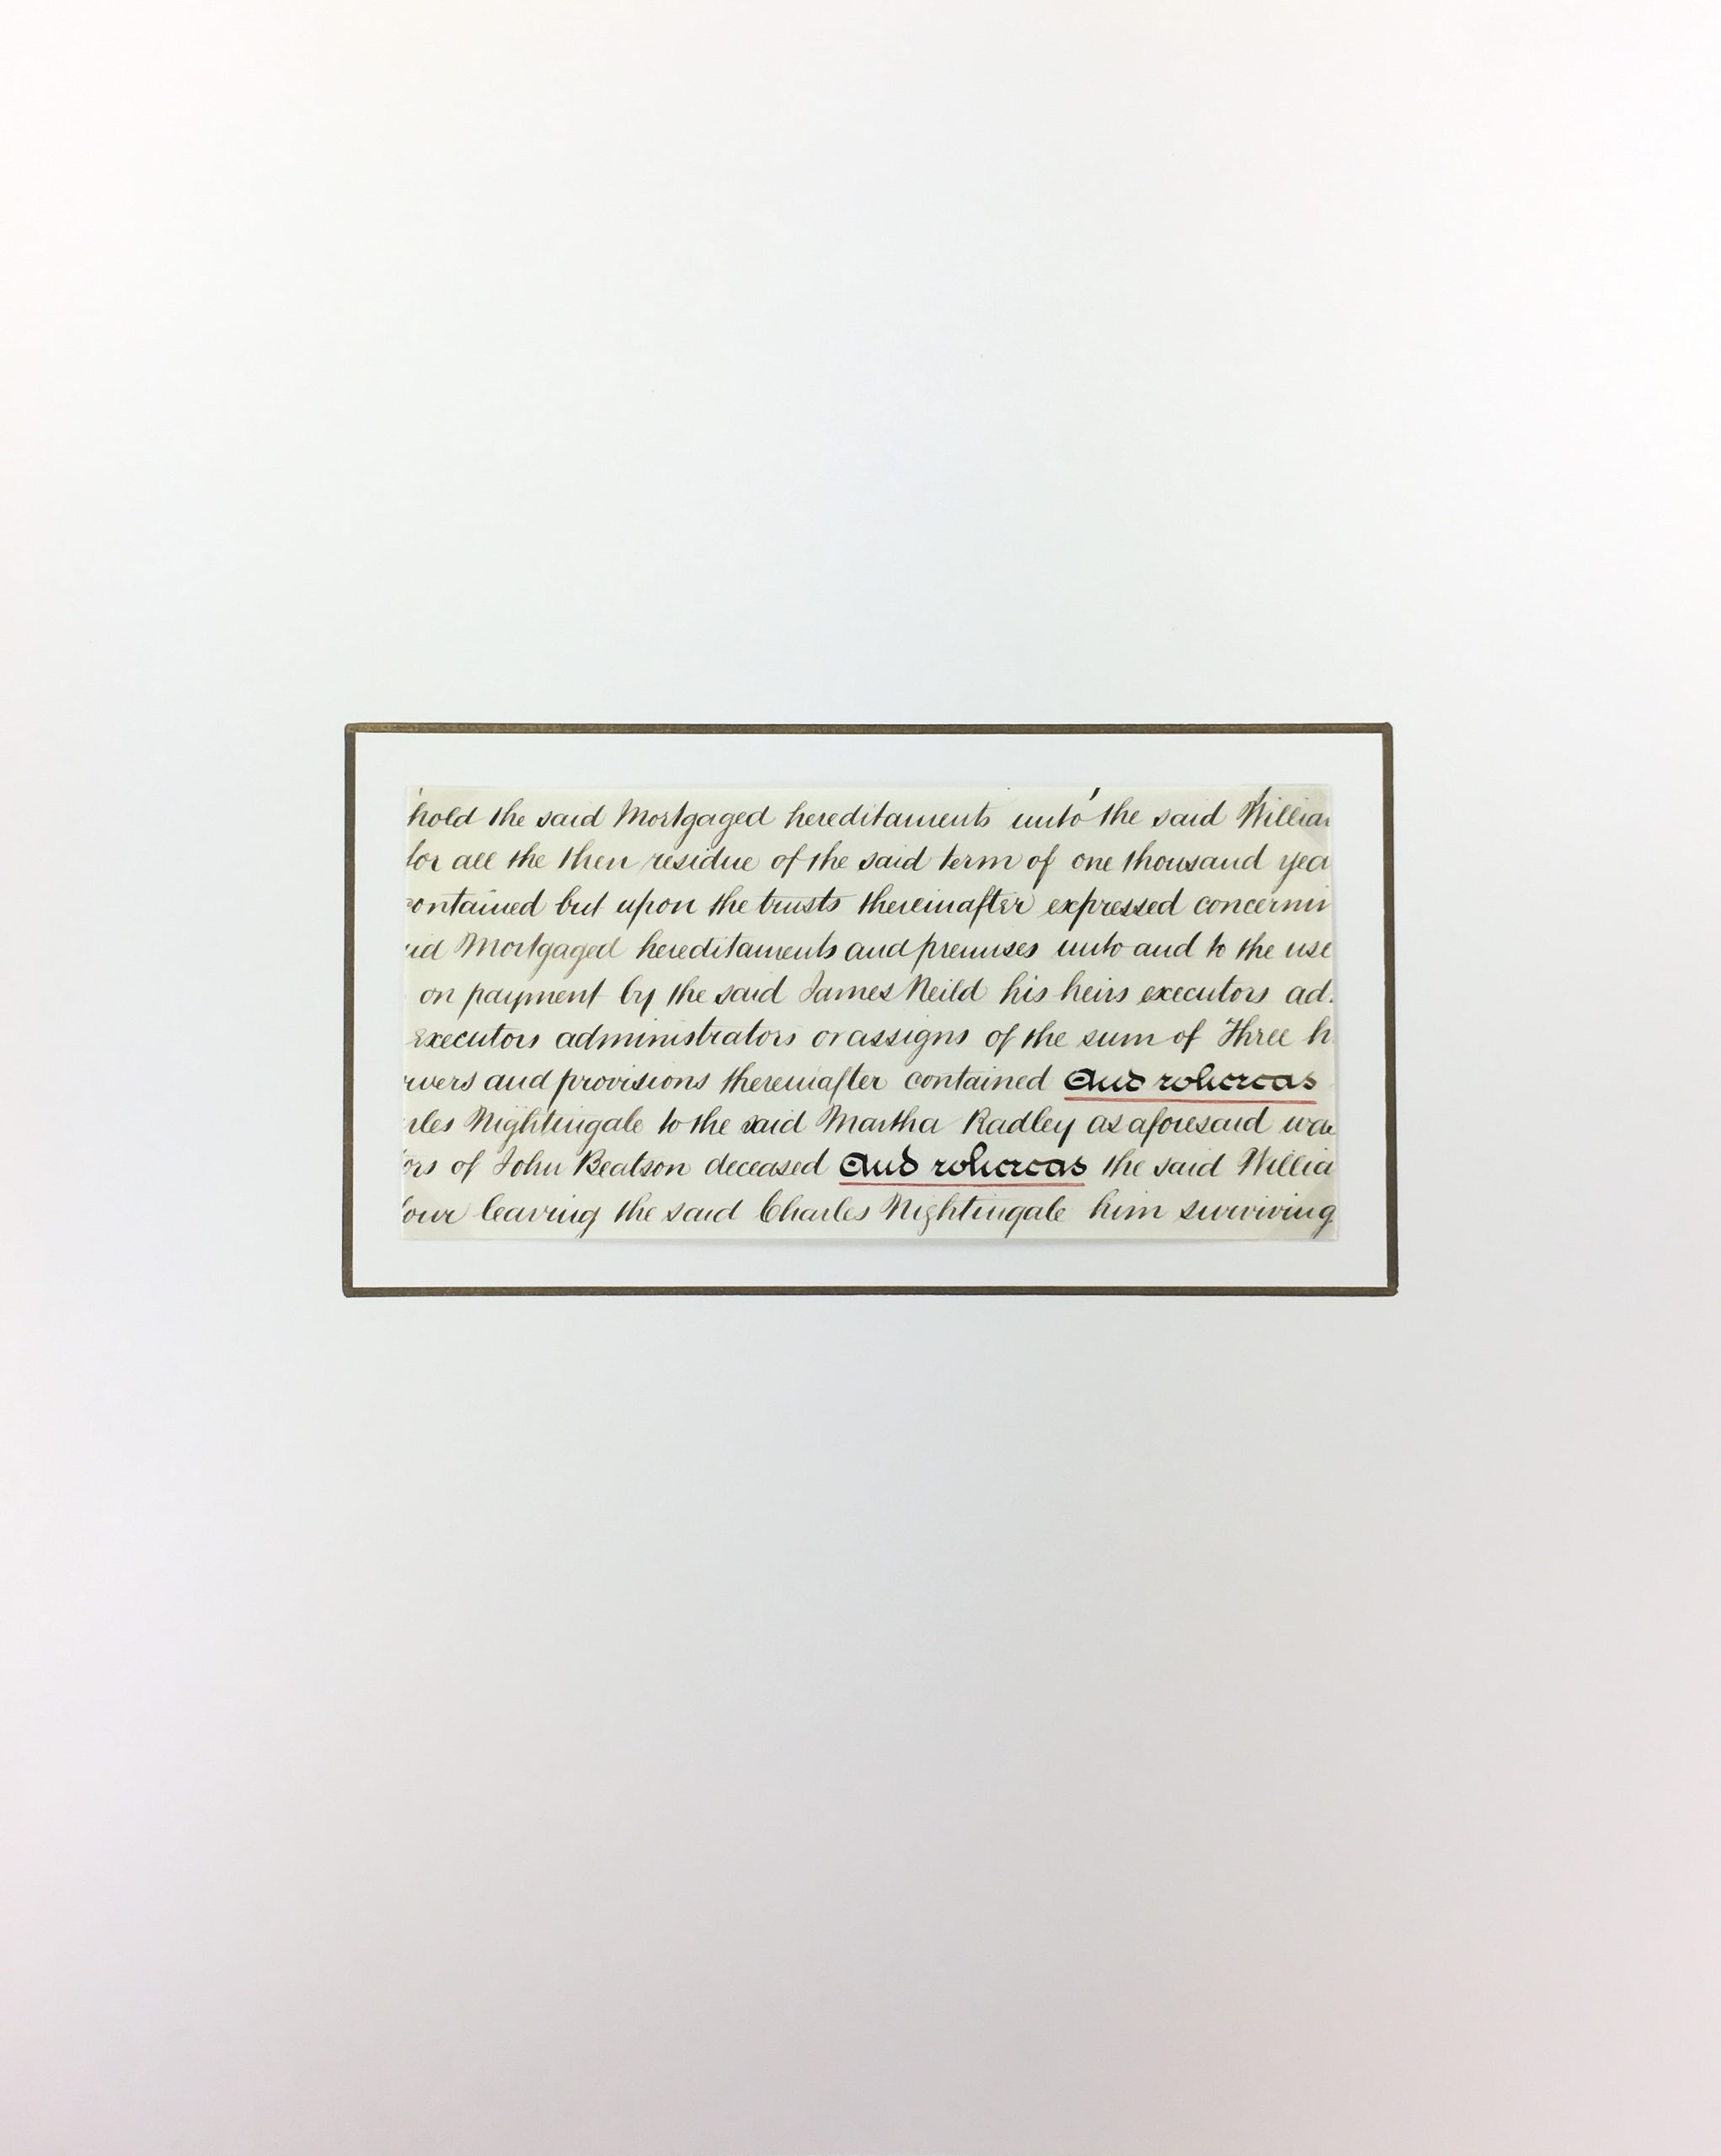 hold the said Mortgaged hereditaments unto the said Willia
for all the then residue of the said term of one thousand yea
contained but upon the trusts thereinafter expressed concerni
id Mortgaged hereditaments and premises unto and to the use
on payment by the said James Neild his heirs executors ad
executors administrators or assigns of the sum of Three h
wers and provisions thereinafter contained And whereas
rles Nightingale to the said Martha Radley as aforesaid wa
ors of John Beatson deceased And whereas the said Willia
our leaving the said Charles Nightingale him surviving